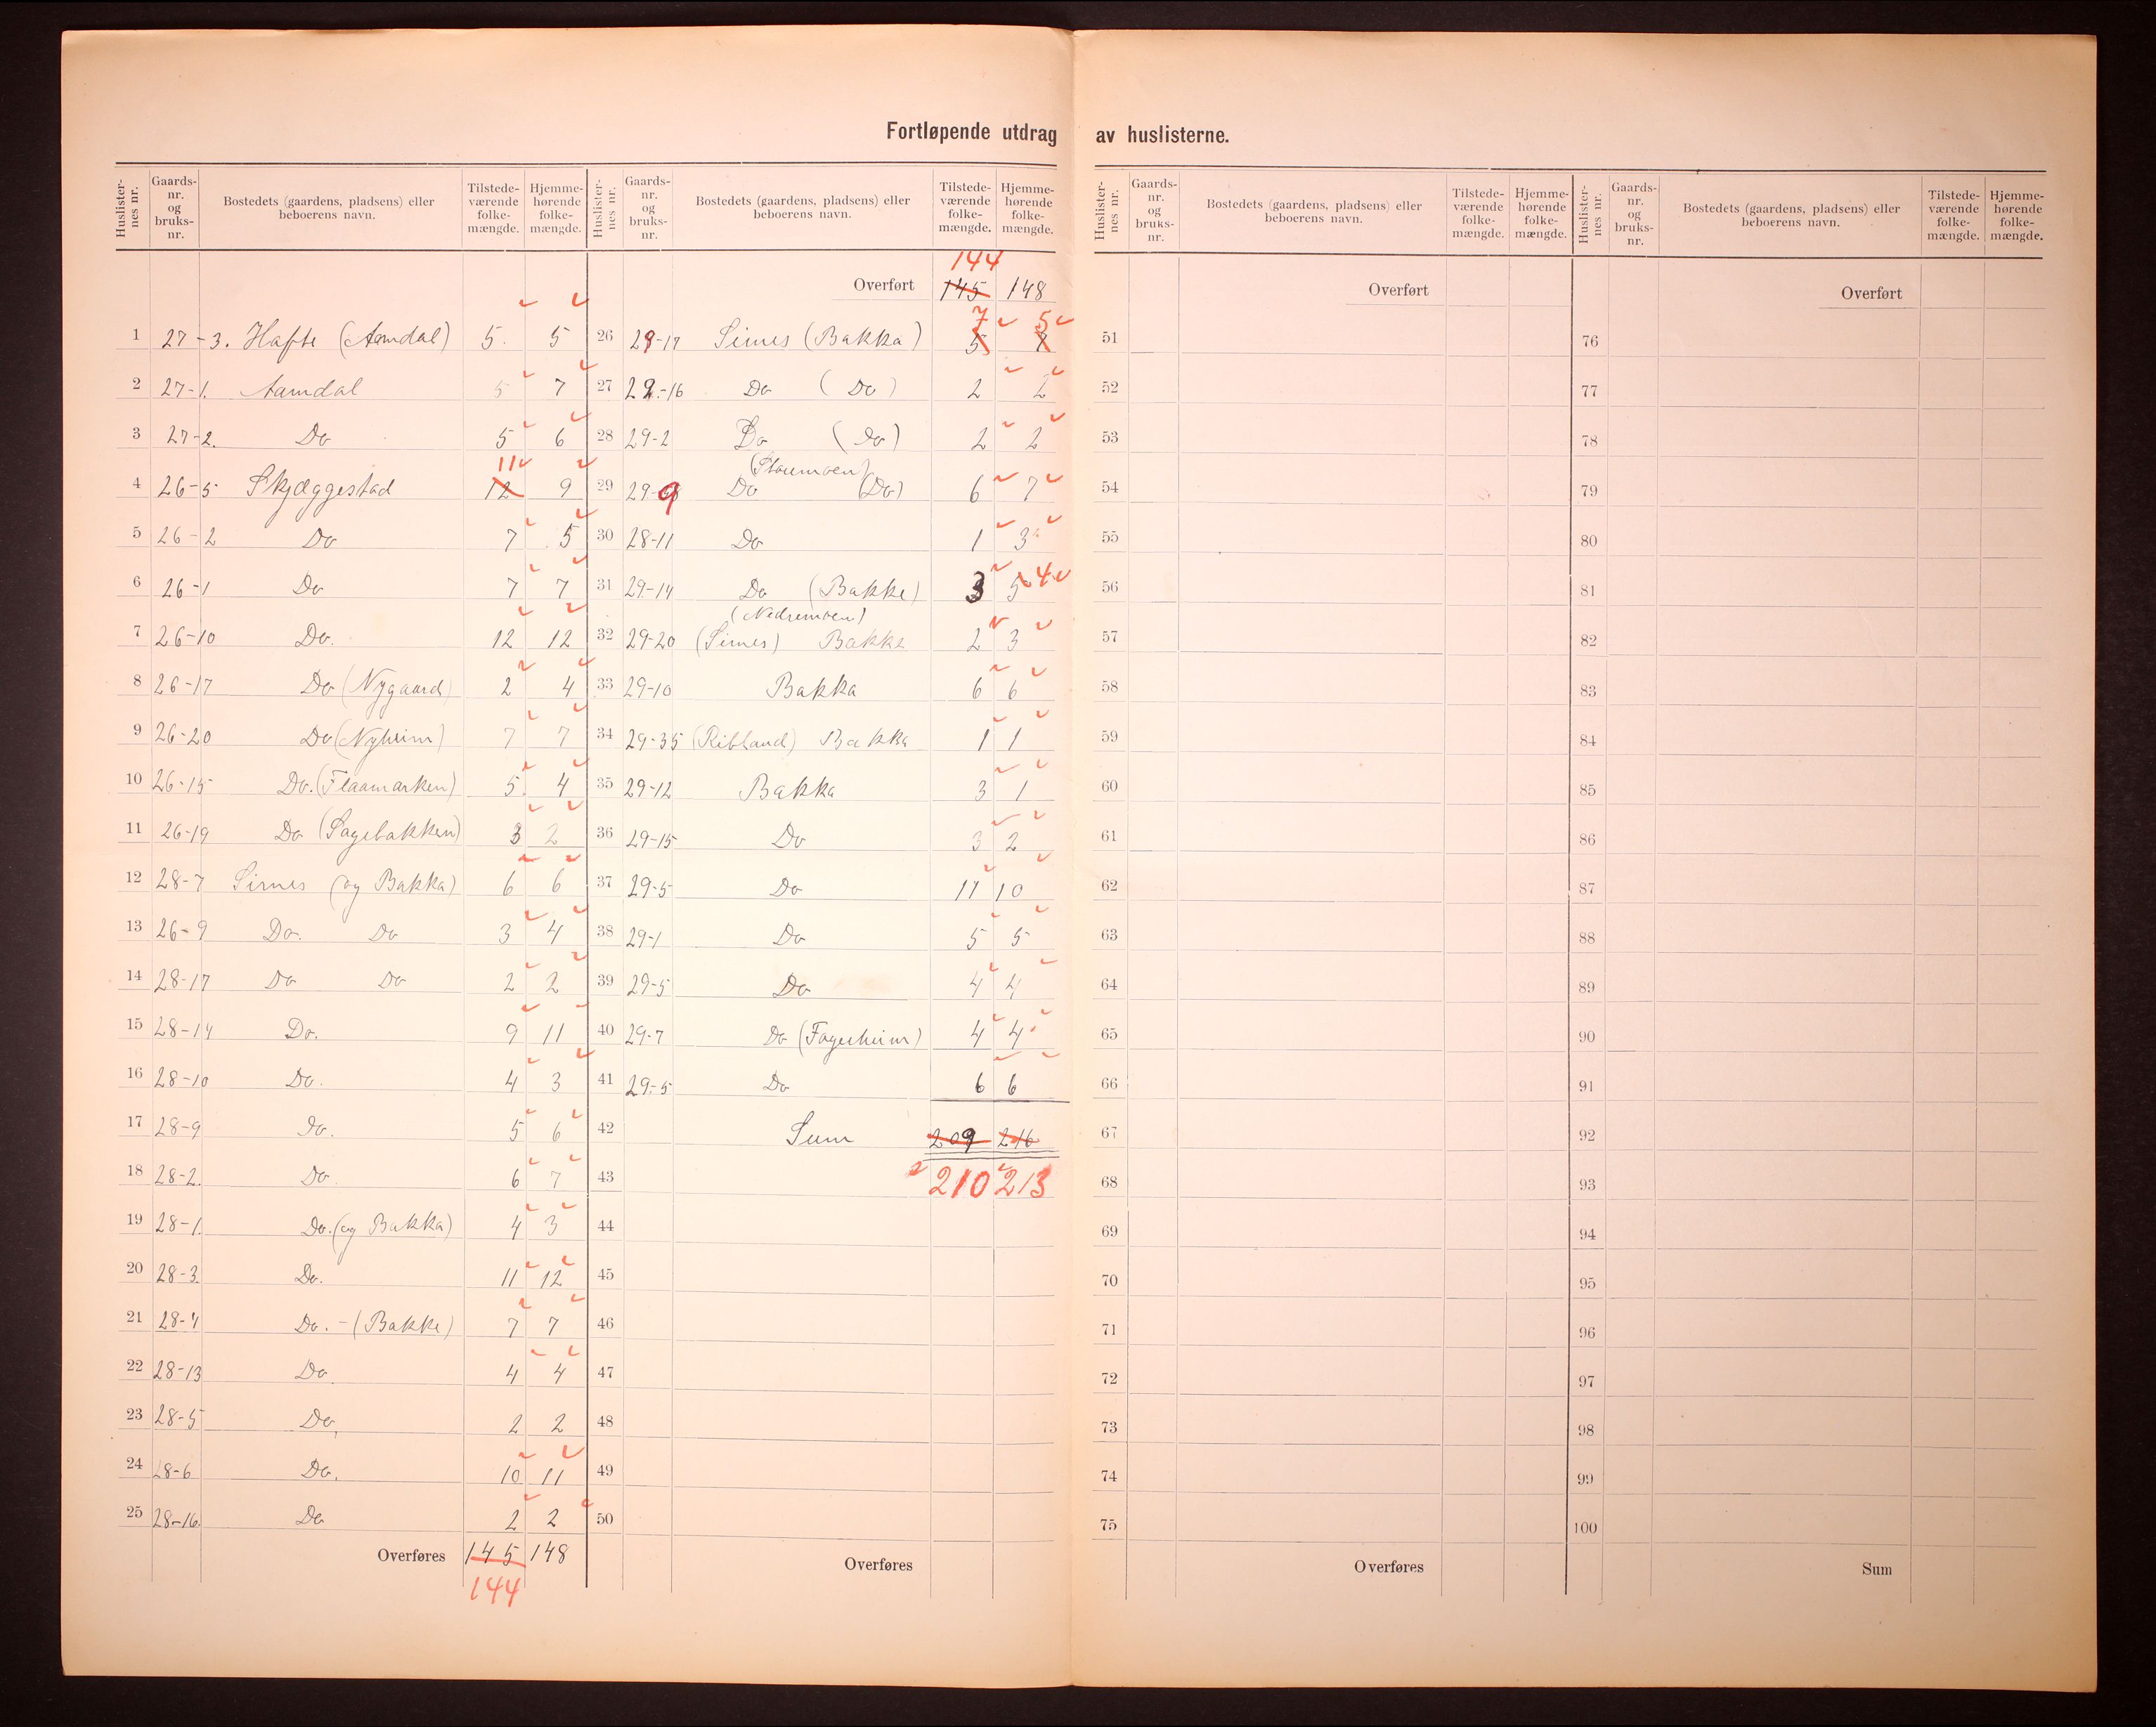 Fortløpende utdrag av huslisterne.
Huslister-nes nr. Gaards-nr. og bruks-nr. Bostedets (gaardens, pladsens) eller beboerens navn. Tilstede-værende folke-mængde. Hjemme-hørende folke-mængde.
1 27-3. Hafte (Aamdal) 5. 5
2 27-1. Aamdal 5 7
3 27-2. Do 5 6
4 26-5 Skjæggestad 12 11 9
5 26-2 Do 7 5
6 26-1 Do 7 7
7 26-10 Do. 12 12
8 26-17 Do (Nygaard) 2 4
9 26-20 Do (Nyheim) 7 7
10 26-15 Do. (Flaamarken) 5 4
11 26-19 Do (Sagebakken) 3 2
12 28-7 Sirnes (og Bakka) 6 6
13 26-9 Do. Do 3 4
14 28-17 Do Do 2 2
15 28-14 Do. 9 11
16 28-10 Do. 4 3
17 28-9 Do. 5 6
18 28-2. Do. 6 7
19 28-1. Do. (og Bakka) 4 3
20 28-3. Do. 11 12
21 28-4 Do. - (Bakke) 7 7
22 28-13 Do. 4 4
23 28-5 Do, 2 2
24 28-6 Do. 10 11
25 28-16. Do 2 2
Overføres 145 148
144
Huslister-nes nr. Gaards-nr. og bruks-nr. Bostedets (gaardens, pladsens) eller beboerens navn. Tilstede-værende folke-mængde. Hjemme-hørende folke-mængde.
144
Overført 145 148
7 5
26 29-17 Sirnes (Bakka) 5 7
27 29-16 Do (Do) 2 2
28 29-2 Do (Do) 2 2
29 29-9 Do (Do) 6 7
30 28-11 Do 1 3
31 29-14 Do (Bakke) 3 5 4
(Nedremoen)
32 29-20 (Sirnes) Bakke 2 3
33 29-10 Bakka 6 6
34 29-35 Bakka 1 1
35 29-12 Bakka 3 1
36 29-15 Do 3 2
37 29-5 Do 11 10
38 29-1 Do 5 5
39 29-5 Do 4 4
40 29-7 Do (Fagerheim) 4 4
41 29-5 Do 6 6
42 Sum 209 216
43 210 213
44
45
46
47
48
49
50
Overføres
Huslister-nes nr. Gaards-nr. og bruks-nr. Bostedets (gaardens, pladsens) eller beboerens navn. Tilstede-værende folke-mængde. Hjemme-hørende folke-mængde.
Overført
51
52
53
54
55
56
57
58
59
60
61
62
63
64
65
66
67
68
69
70
71
72
73
74
75
Overføres
Huslister-nes nr. Gaards-nr. og bruks-nr. Bostedets (gaardens, pladsens) eller beboerens navn. Tilstede-værende folke-mængde. Hjemme-hørende folke-mængde.
Overført
76
77
78
79
80
81
82
83
84
85
86
87
88
89
90
91
92
93
94
95
96
97
98
99
100
Sum